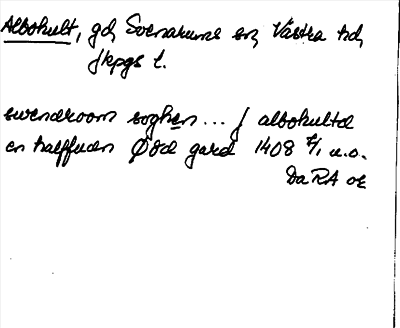 Albohult, gd, Svenarums sn, Västra hd,
Jkpgs l.
swendroom soghen ... j albohultd
en halffuden Ødd gard 1408 7/1 u.o.
Da RA or